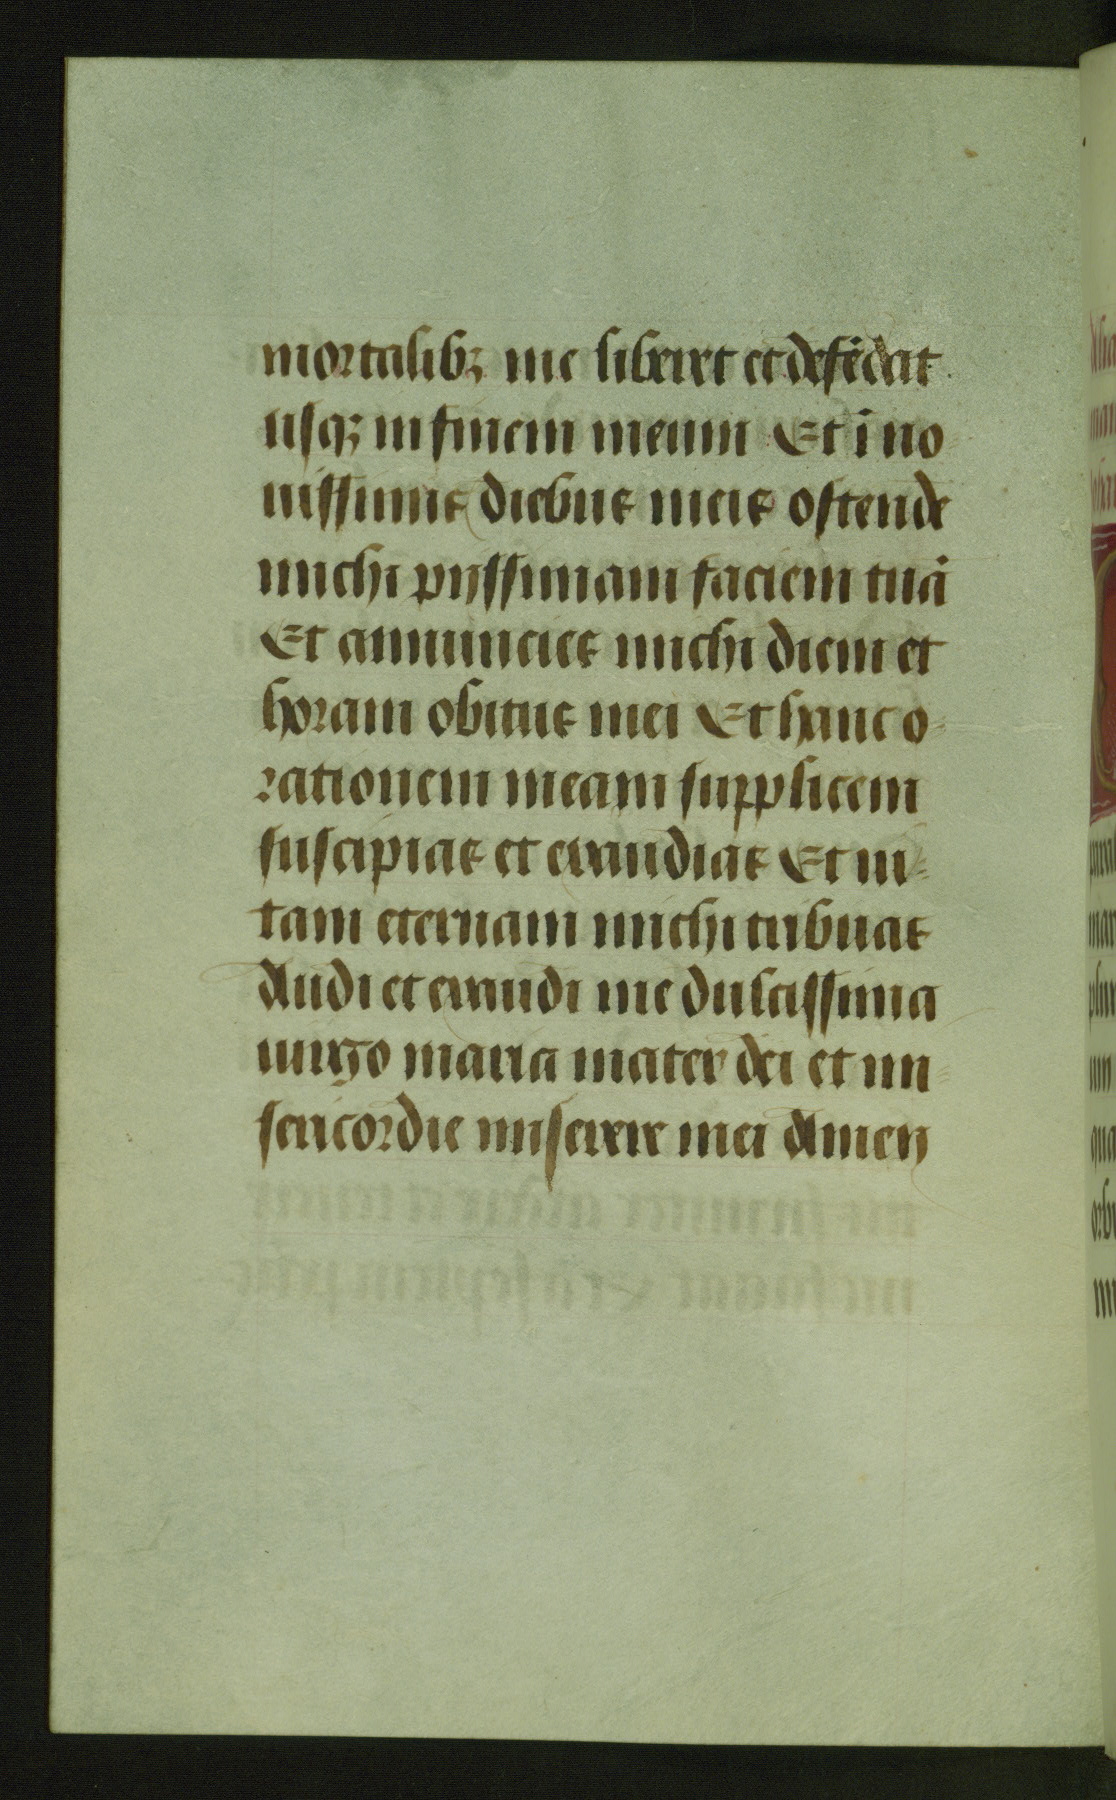 mortalibꝫ me liberet et defēdat
usqꝫ in finem meum Et ī no
uissimis diebus meis ostende
michi pijssimam faciem tuā
Et annuncies michi diem et
horam obitus mei Et hanc o-
rationem meam supplicem
suscipias et exaudias Et ui-
tam eternam michi tribuas
Audi et exaudi me dulcissima
uirgo maria mater dei et mi-
sericordie miserere mei Amen